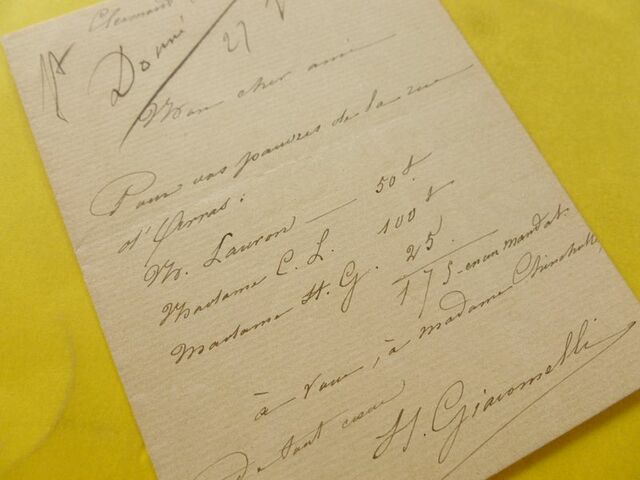 Donné
27
Mon cher ami
Pour vos pauvres de la rue
d'Arras:
M. Lauron — 50 f.
Madame C. L. 100 f
Madame H. G. 25.
175 - en un mandat.
à vous, à madame
De tout coeur
H. Giacomelli